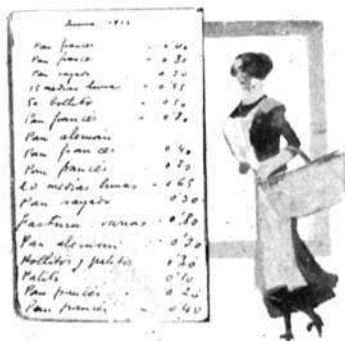 Enero 1913
Pan francés - 0'40
Pan francé - 0'80
Pan rayado - 0'30
15 medias lunas - 0'55
50 bollitos - 0'50
Pan francés - 0'80
Pan alemán
Pan francés 0'40
Pan francés - 0'80
20 medias lunas - 0'65
Pan rayado 0'30
Factura varias - 0'80
Pan alemán 0'30
Bollitos y palitos 0'30
Palito 0'10
Pan francés - 0'20
Pan francés - 0'40